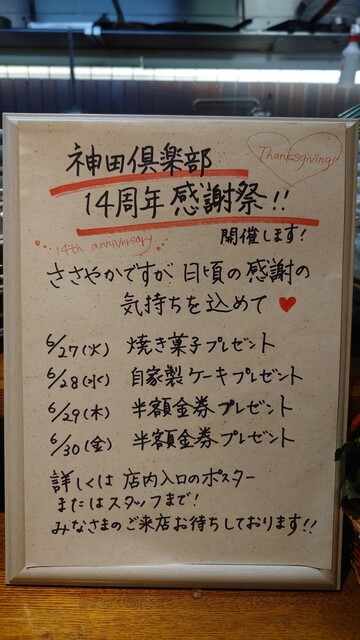 神田倶楽部
Thanksgiving!
14周年 感謝祭!!
14th anniversary
開催します!
ささやかですが 日頃の感謝の
気持ちを込めて♥
6/27(火) 焼き菓子プレゼント
6/28(水) 自家製ケーキプレゼント
6/29(木) 半額金券プレゼント
6/30(金) 半額金券プレゼント
詳しくは 店内入口のポスター
またはスタッフまで!
みなさまのご来店お待ちしております!!